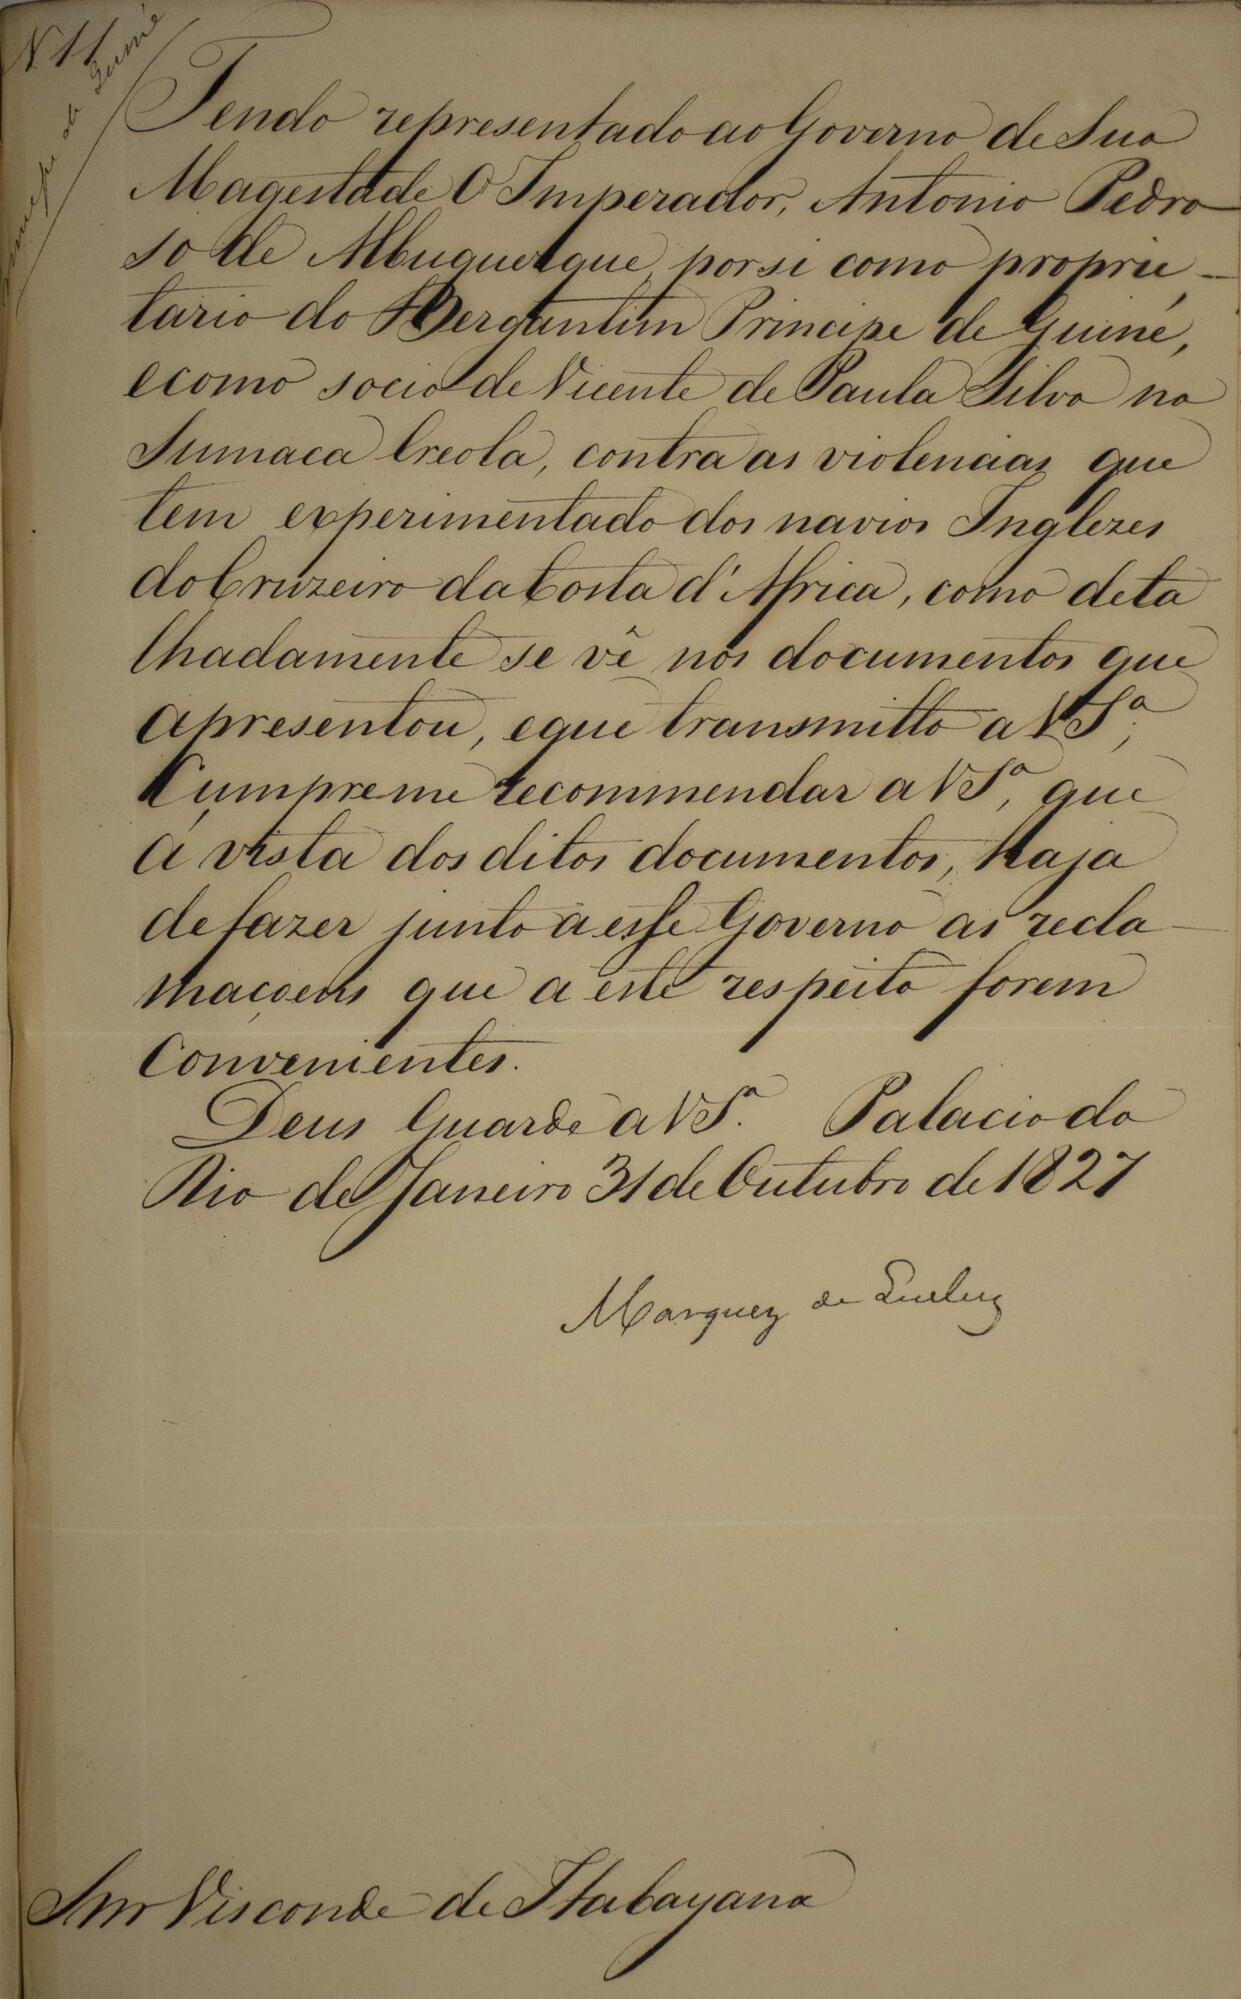 N 11
Principe de Guiné
Tendo representado ao Governo de Sua
Magestade O Imperador, Antonio Pedro
so de Albuquerque, por si como proprie-
tario do Bergantim Principe de Guiné,
e como socio de Vicente de Paula Silva na
Sumaca Creola, contra as violencias que
tem experimentado dos navios Inglezes
do Cruzeiro da Costa d'Africa, como deta
lhadamente se vê nos documentos que
apresentou, e que transmitto a V Sª;
Cumpreme recommendar a V Sª, que
á vista dos ditos documentos, haja
de fazer junto a esse Governo as recla-
maçoens que a este respeito forem
Convenientes.
Deus Guarde a V Sª. Palacio do
Rio de Janeiro 31 de Outubro de 1827
Marquez de Queluz
Snr Visconde de Itabayana